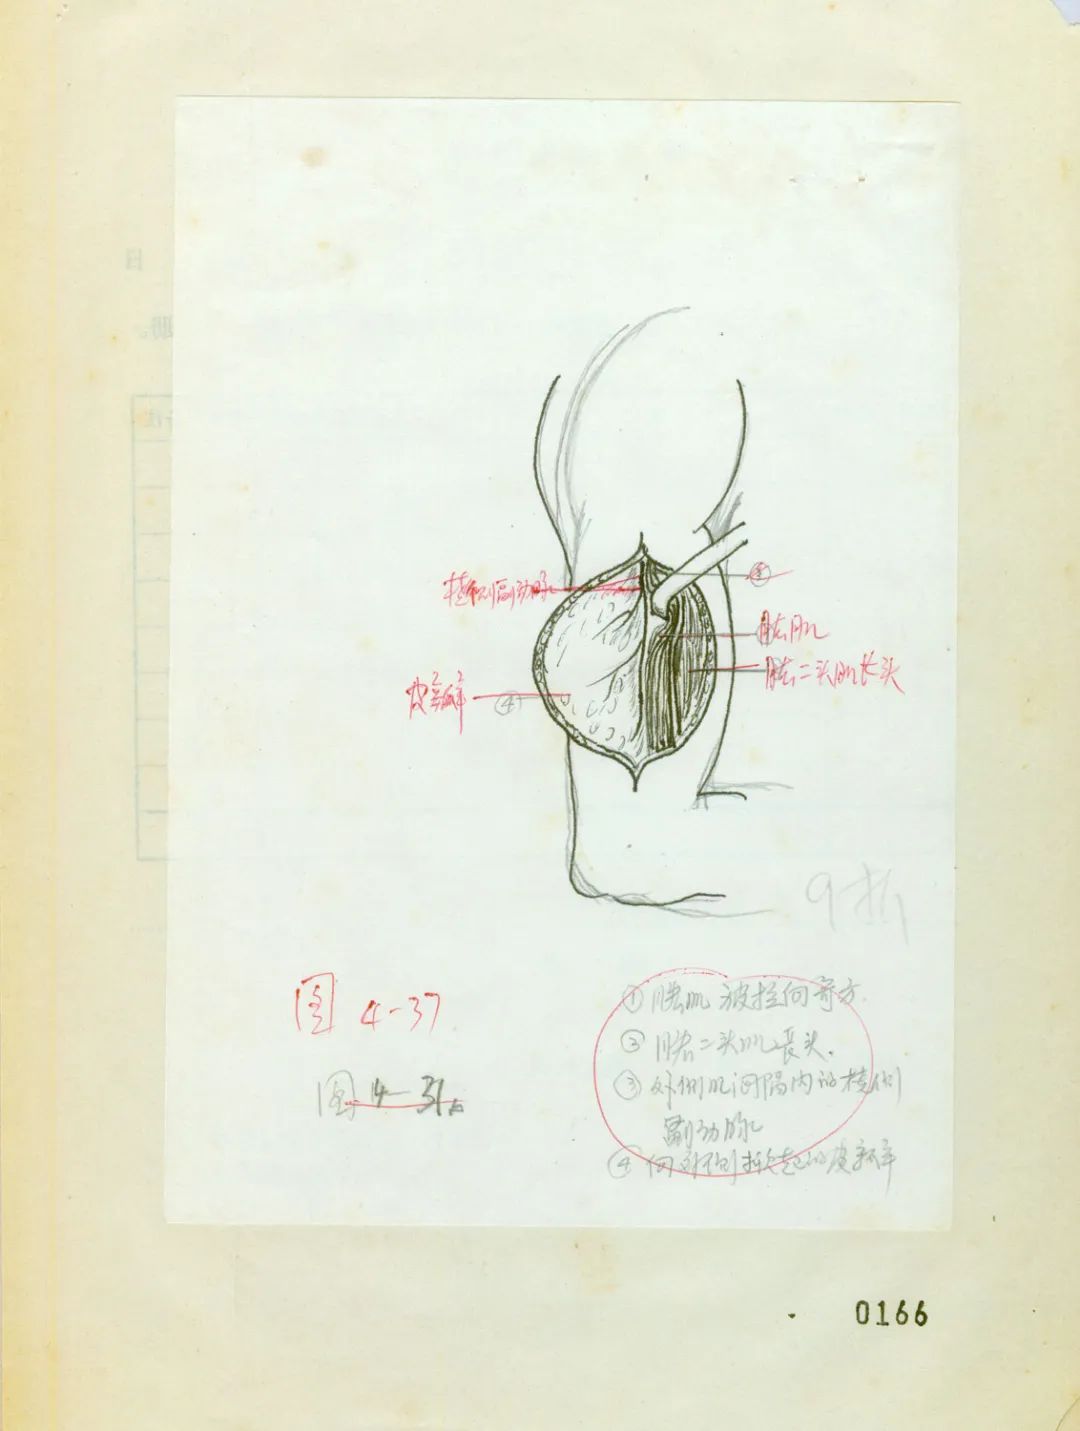 桡侧副动脉
③
肱肌
肱二头肌长头
皮瓣
④
图 4-37
图 4-31
① 肱肌 被拉向前方.
② 肱二头肌长头.
③ 外侧肌间隔内的桡侧
副动脉
④ 向 侧掀起的皮瓣
0166